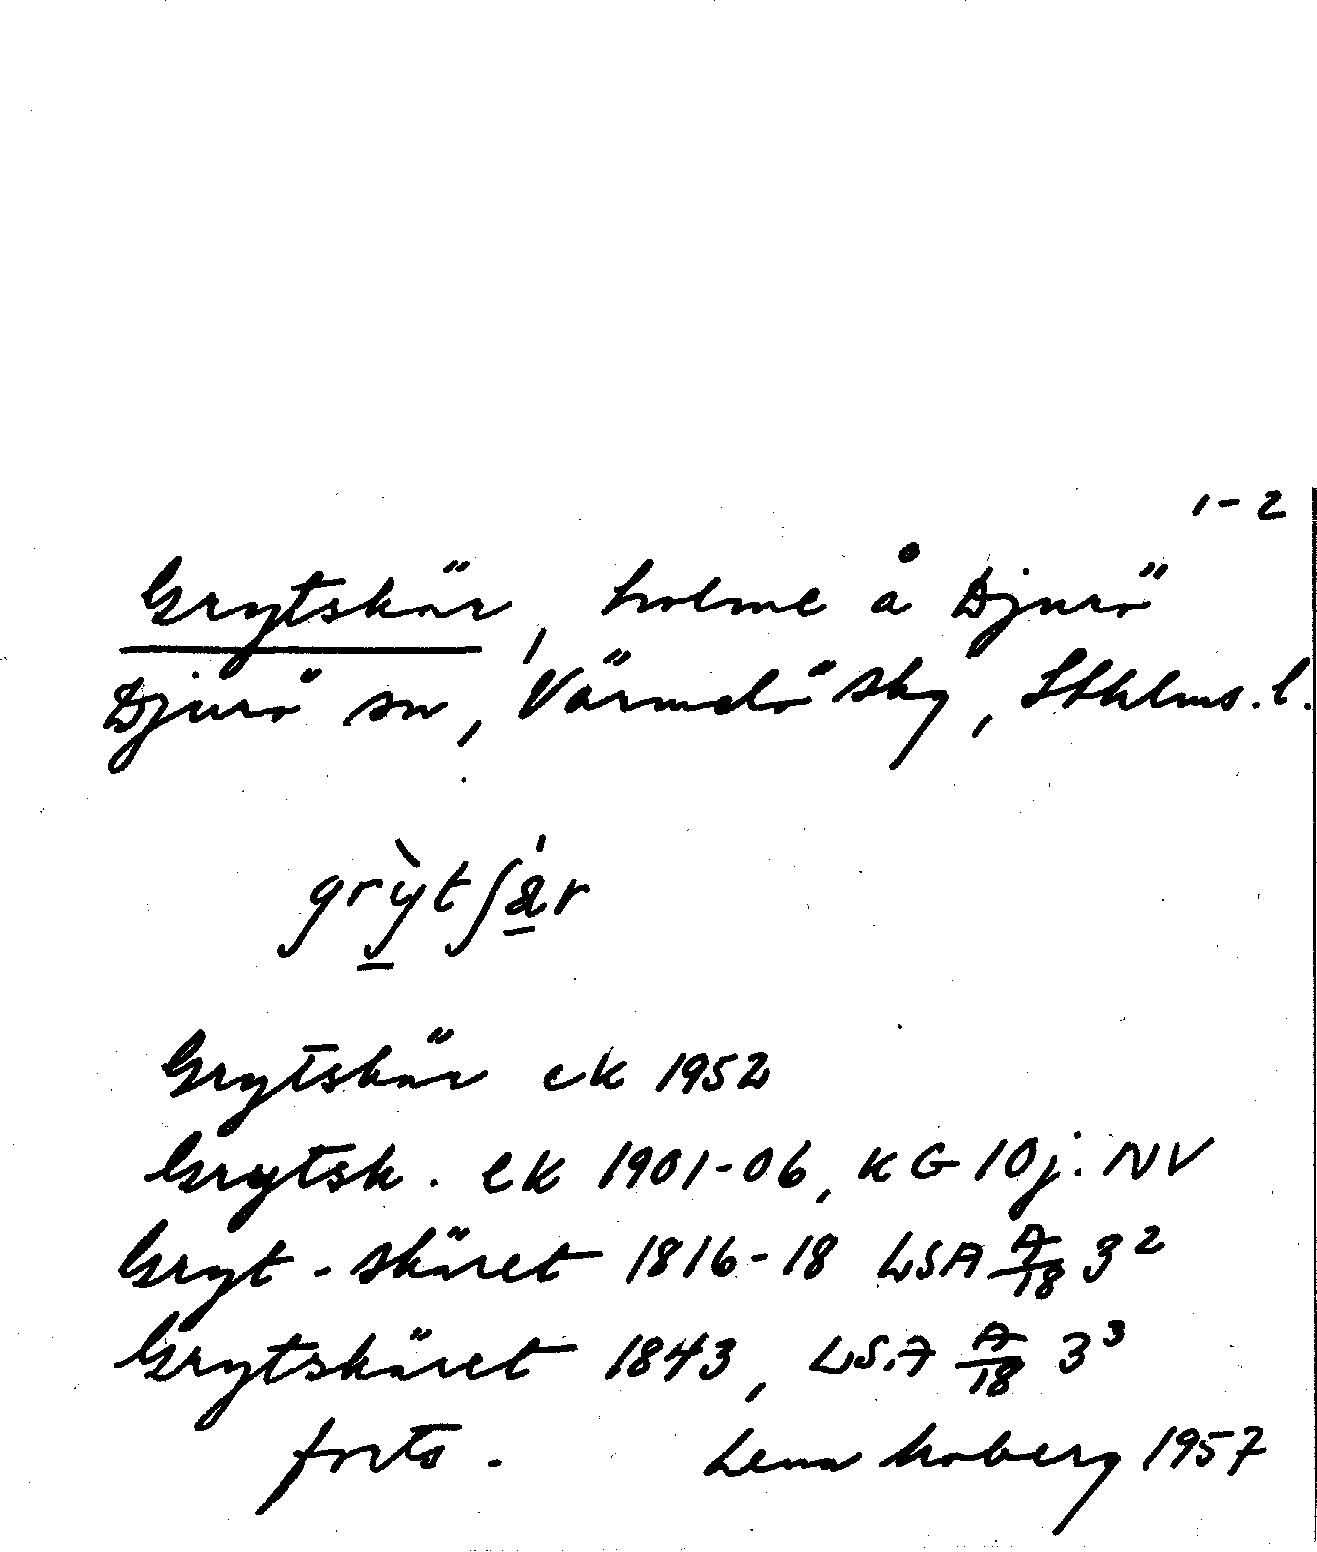 1-2
Grytskär, holme å Djurö
Djurö sn, Värmdö skg, Sthlms.l.
grỳtʃä̀r
Grytskär ek 1952
Grytsk. ek 1901-06, KG 10j. NV
Gryt-skäret 1816-18 LSA A/18 3²
Grytskäret 1843, LSA A/18 3³
forts. Lena Moberg 1957